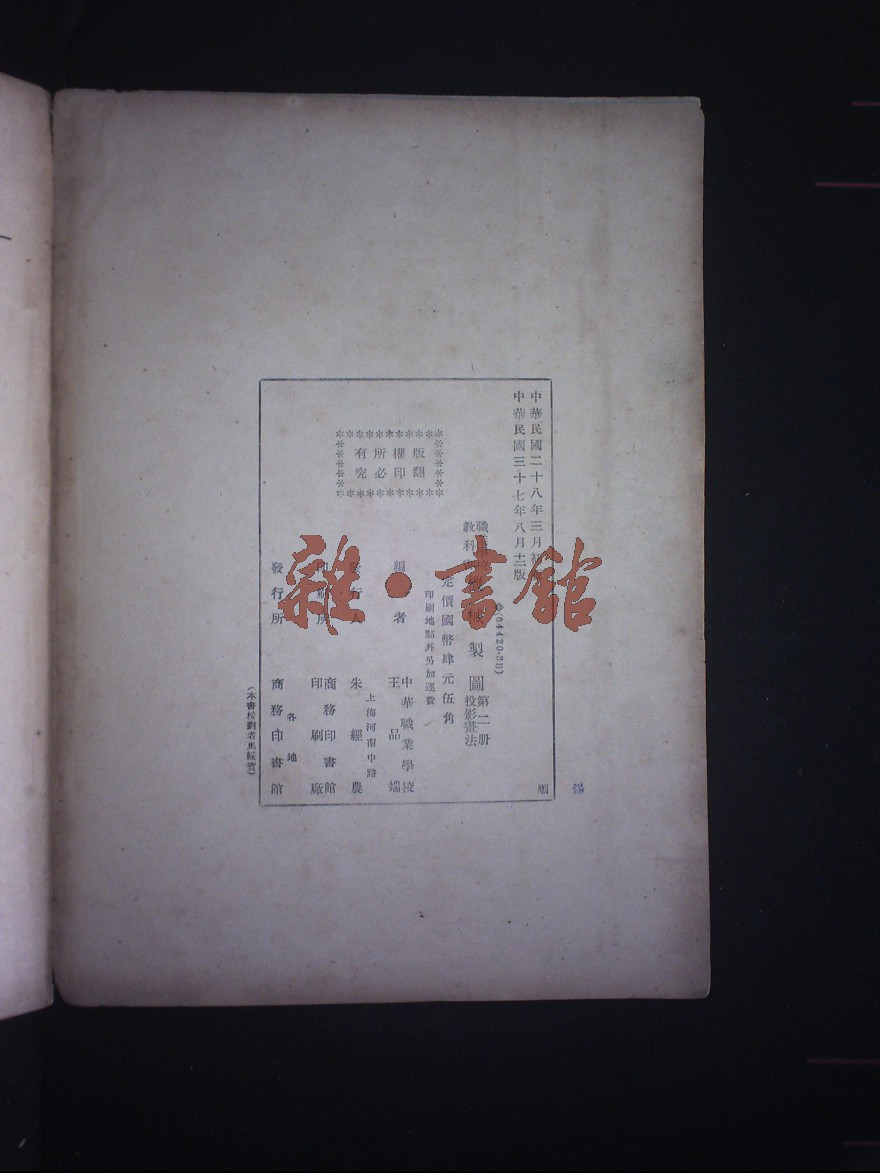 中華民國二十八年三月初
中華民國三十七年八月十二版
(64420·3B)
職業
教科
械製圖
第二册
投影畫法
定價國幣肆元伍角
印刷地點外另加運費
版權所有
翻印必究
編者
中華職業學校
王品端
發行人
朱經農
上海河南中路
印刷所
商務印書館
印刷廠
發行所
各地
商務印書館
(本書校對者
雜·書館